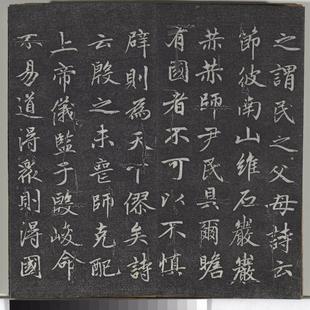 之謂民之父母詩云
節彼南山維石巖巖
赫赫師尹民具爾瞻
有國者不可以不慎
辟則為天下僇矣詩
云殷之未喪師克配
上帝儀監于殷峻命
不易道得衆則得國